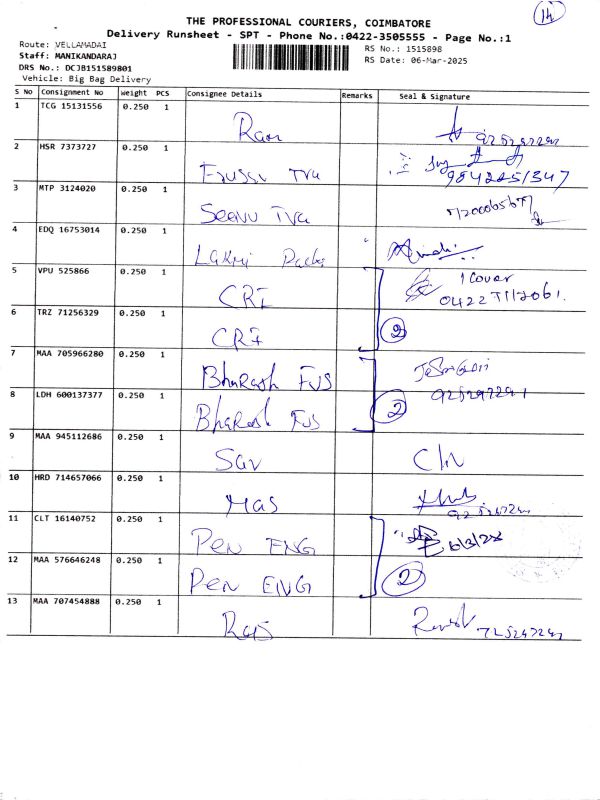 14
THE PROFESSIONAL COURIERS, COIMBATORE
Delivery Runsheet - SPT - Phone No.:0422-3505555 - Page No.:1
Route: VELLAMADAI
RS No.: 1515898
Staff: MANIKANDARAJ
RS Date: 06-Mar-2025
DRS No.: DCJB151589801
Vehicle: Big Bag Delivery
S No Consignment No Weight PCS Consignee Details Remarks Seal & Signature
1 TCG 15131556 0.250 1
2 HSR 7373727 0.250 1 9842251347
3 MTP 3124020 0.250 1
4 EDQ 16753014 0.250 1
5 VPU 525866 0.250 1 CRI 1 Cover
6 TRZ 71256329 0.250 1 CRI 2
7 MAA 705966280 0.250 1 Bharath
8 LDH 600137377 0.250 1 Bharath 2
9 MAA 945112686 0.250 1
10 HRD 714657066 0.250 1 Mas
11 CLT 16140752 0.250 1 Pen ENG
12 MAA 576646248 0.250 1 Pen ENG 2
13 MAA 707454888 0.250 1